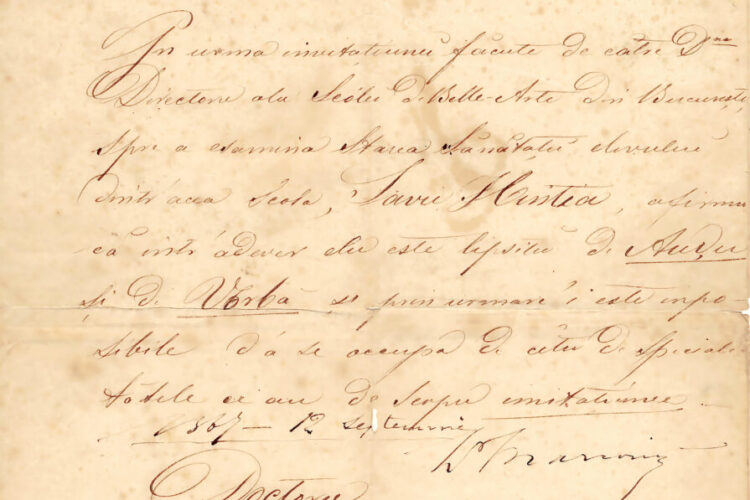 In urma invitațiunei făcute de către Dnne
Directore ala Scólei d Belle-Arte din Bucuresti,
spre a esamina starea sănătăței elevului
dintr'acea scola, Savu Hintia, afirmu
că intr'adever elu este lipsitu de Audu
și di Vorbă și prin urmare 'i este inpo-
sibile d'a se occupa di câtu di speciali
tățile ce au de scopu imitatiunea
1867 — 12 Septemvrie
Doctore